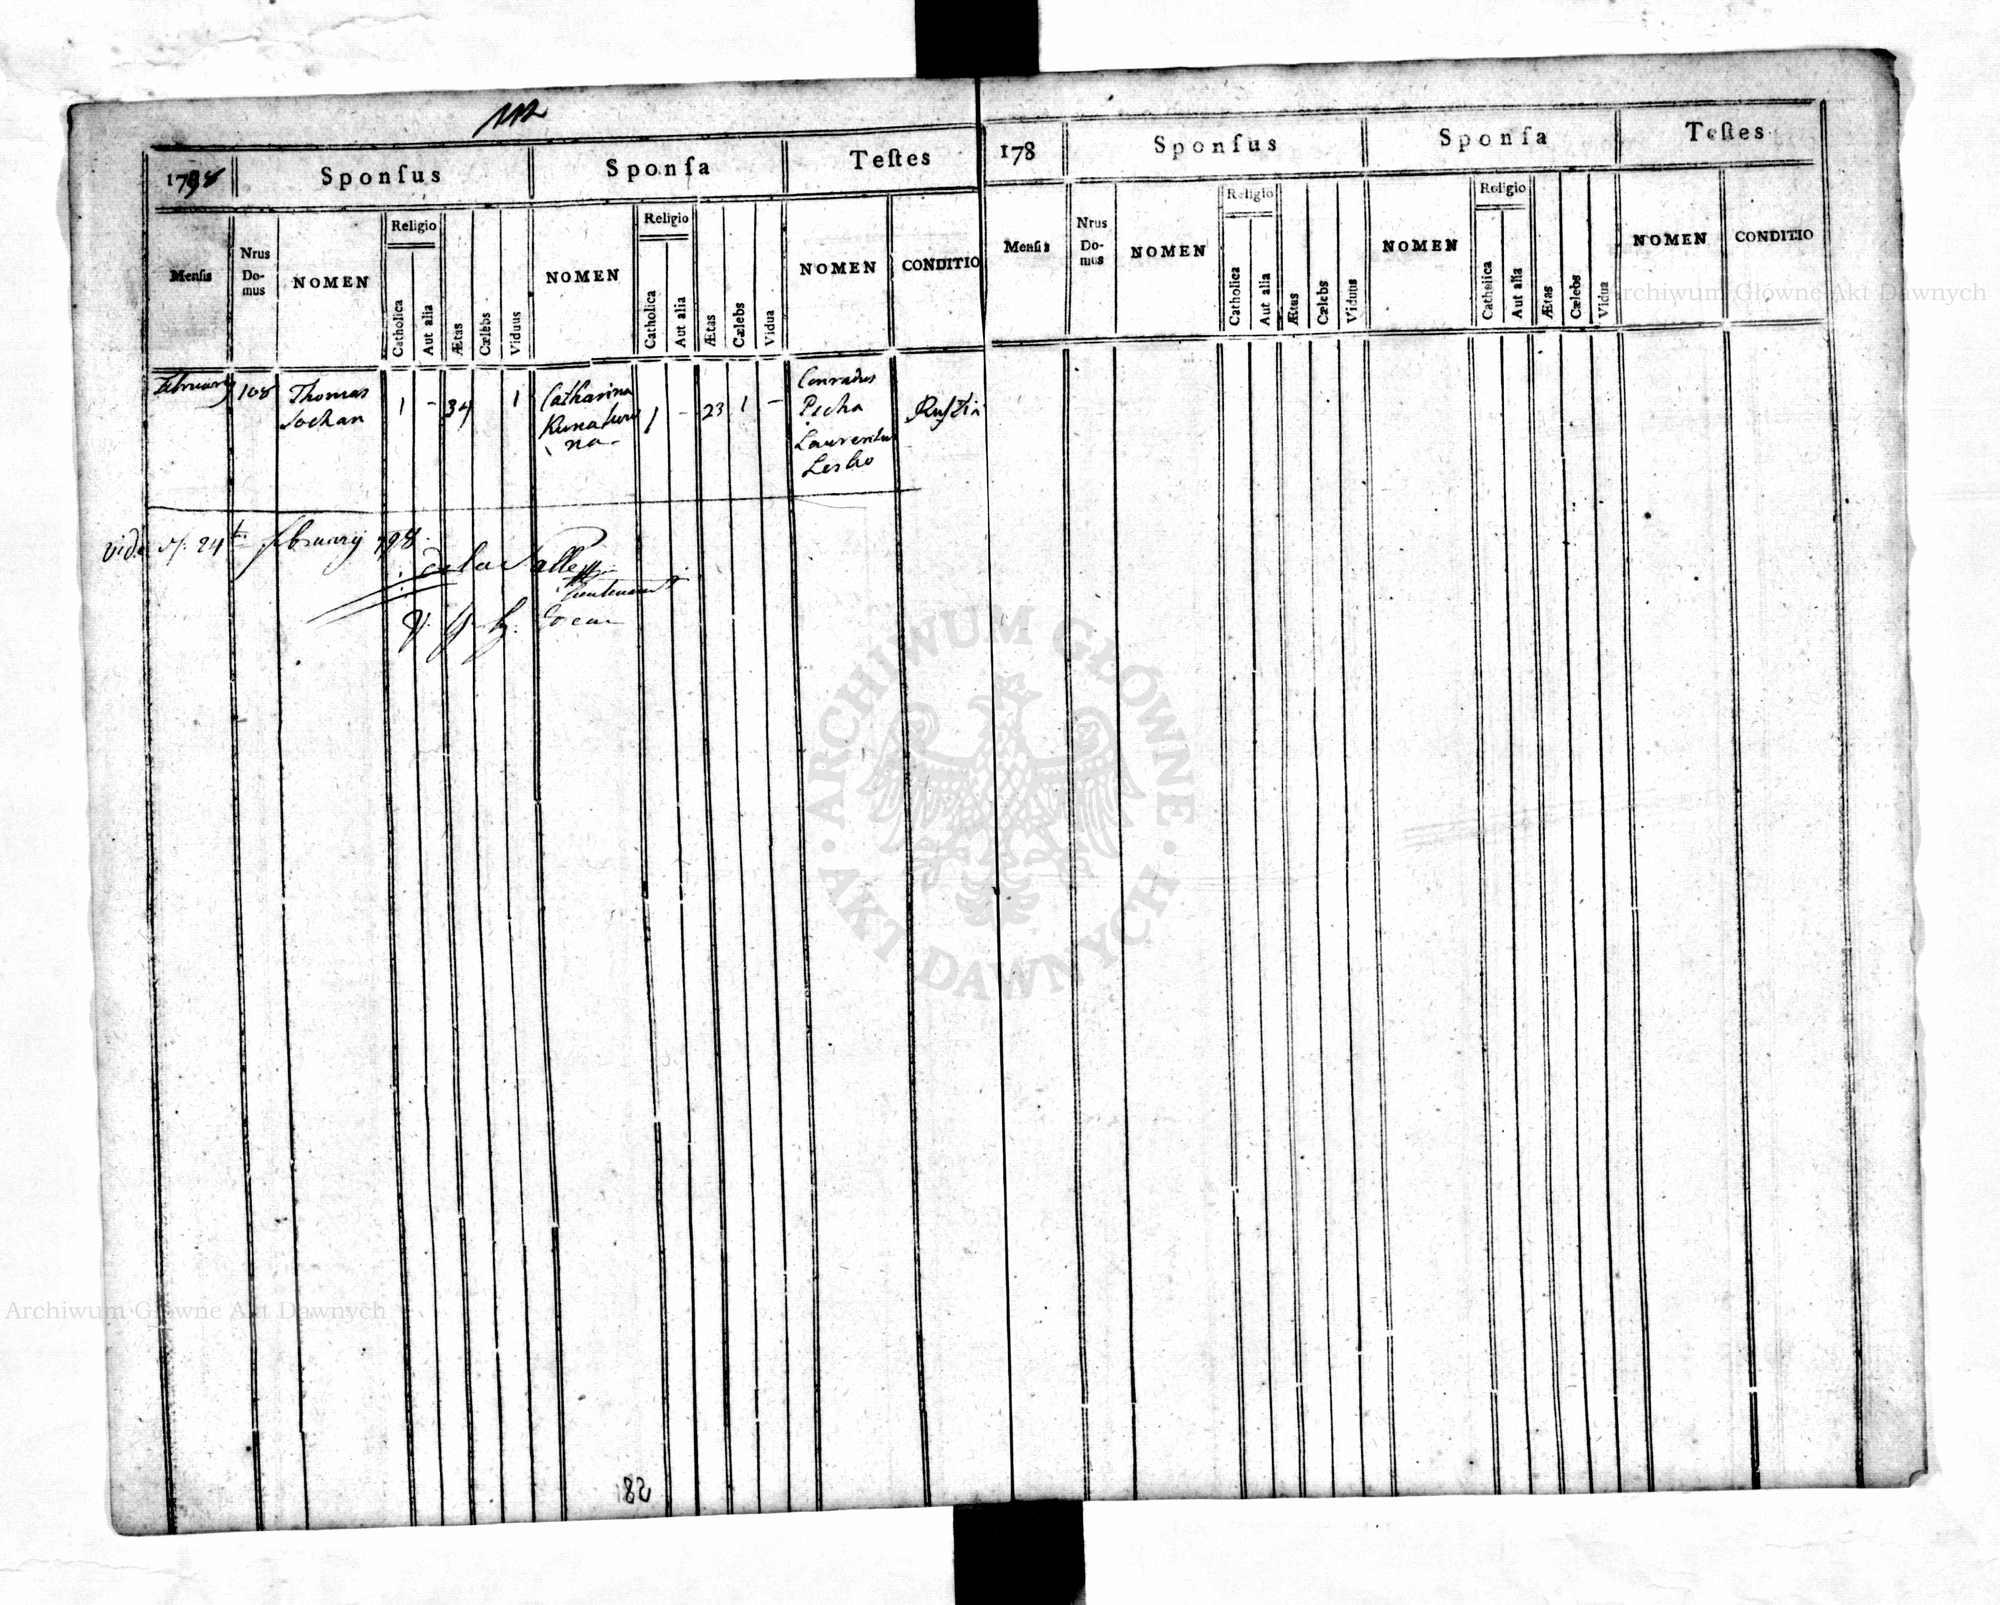 1798
Sponſus
Sponſa
Teſtes
Menſis
Nrus
Do-
mus
NOMEN
Religio
Catholica
Aut alia
Ætas
Cælebs
Viduus
NOMEN
Religio
Catholica
Aut alia
Ætas
Cælebs
Vidua
NOMEN
CONDITIO
February 108 Thomas 1 - 34 1 Catharina 1 - 23 1 - Conradus
Sochan
Pecha
Laurentius
Lesko
24 february 798
de la
Lieutenant
82
178
Sponſus
Sponſa
Teſtes
Menſis
Nrus
Do-
mus
NOMEN
Religio
Catholica
Aut alia
Ætas
Cælebs
Viduus
NOMEN
Religio
Catholica
Aut alia
Ætas
Cælebs
Vidua
NOMEN
CONDITIO
Archiwum Główne Akt Dawnych
ARCHIWUM GŁÓWNE · AKT DAWNYCH ·
Archiwum Główne Akt Dawnych